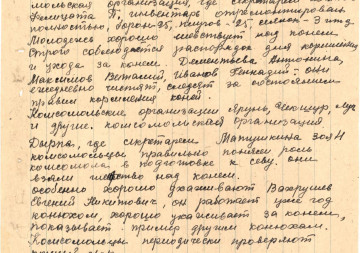 мольская организация, где секретарем
Феницата П. инвентарь отремонтирован
полностью, борон-25, плугов-25, сеялок-3 шт.
Молодежь хорошо шевствует над конем.
Строго соблюдается распорядок дня кормления
и ухода за конем. Дементьева Антонина,
Максимов Виталий, Иванов Геннадий: они
ежедневно чистят, следят за состоянием
правил кормления коней.
Комсомольские организации
и другие. комсомольская организация
Дырпа, где секретарем Матушкина Зоя 4
комсомольцы правильно поняли роль
комсомола в подготовке к севу. они
взяли шефство над конем.
особенно хорошо ухаживают Вахрушев
Евгений Никитович, он работает уже год
конюхом, хорошо ухаживает за конем,
показывает пример другим конюхам.
Комсомольцы периодически проверяют